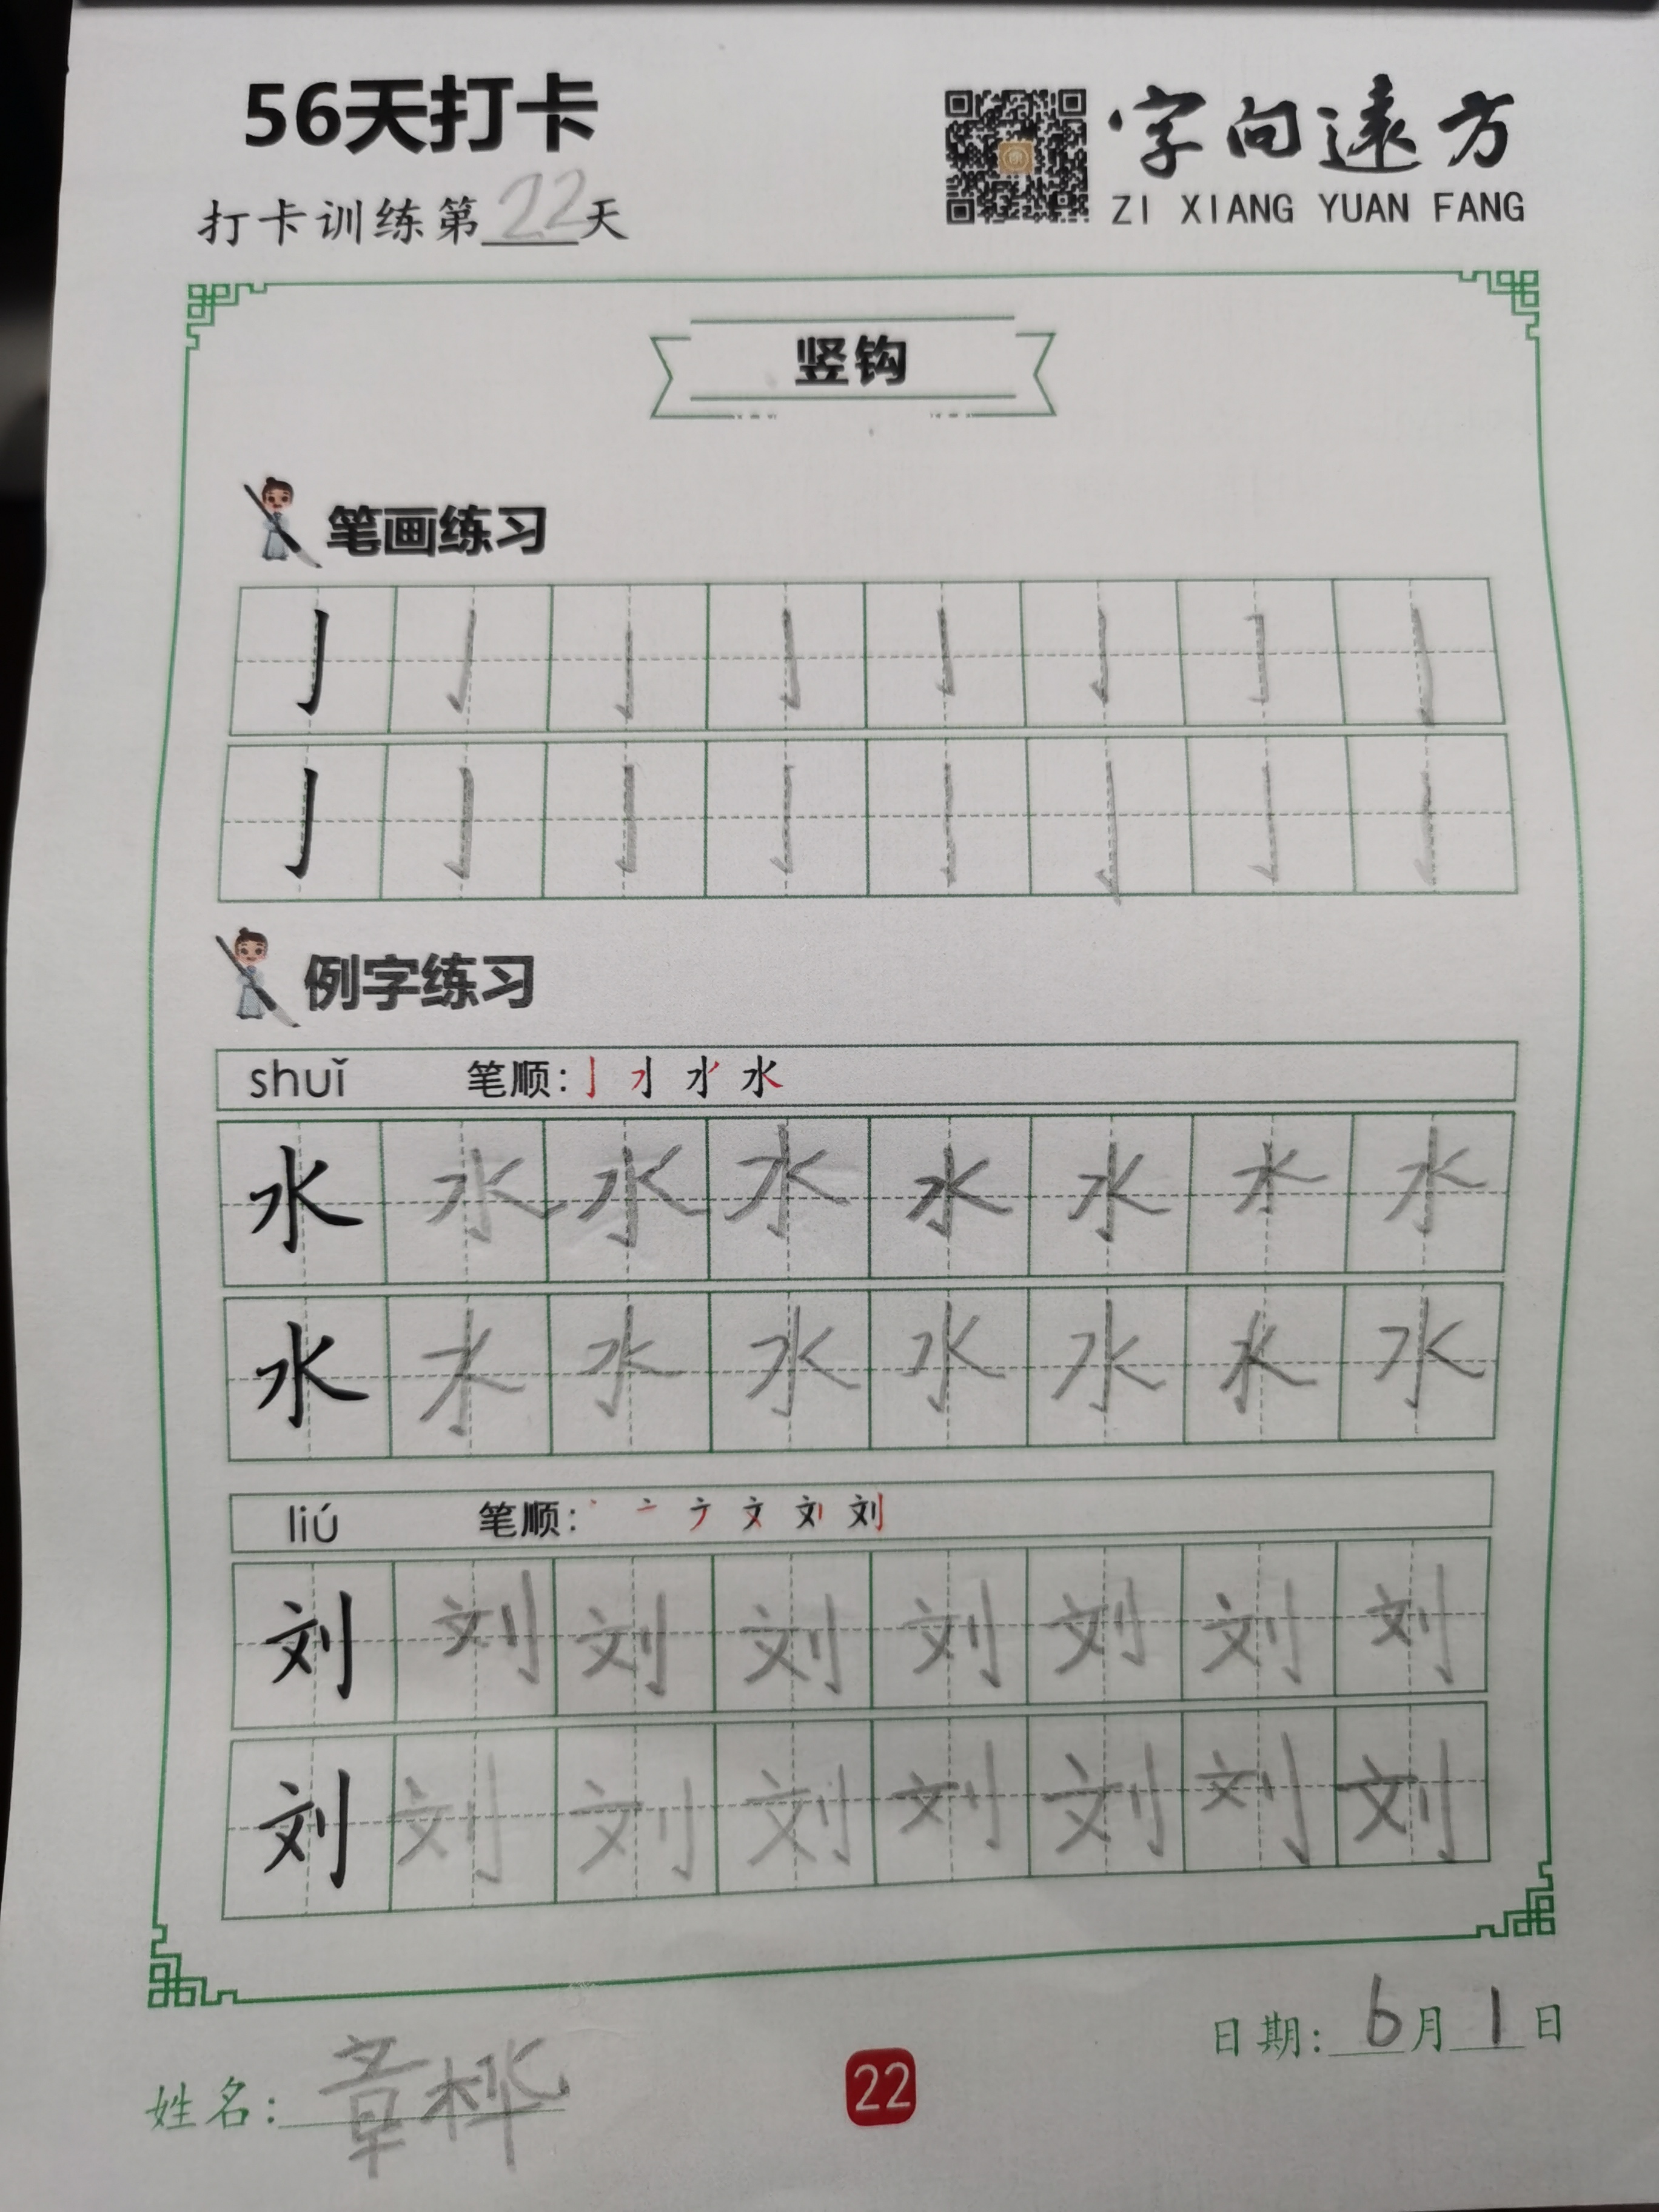 56天打卡
字向遠方
ZI XIANG YUAN FANG
打卡训练第22天
竖钩
笔画练习
亅 亅 亅 亅 亅 亅 亅 亅
亅 亅 亅 亅 亅 亅 亅 亅
例字练习
shuǐ 笔顺: 水
水 水 水 水 水 水 水 水
水 水 水 水 水 水 水 水
liú 笔顺: 文 刘
刘 刘 刘 刘 刘 刘 刘 刘
刘 刘 刘 刘 刘 刘 刘 刘
日期: 6月1日
姓名: 章桦
22